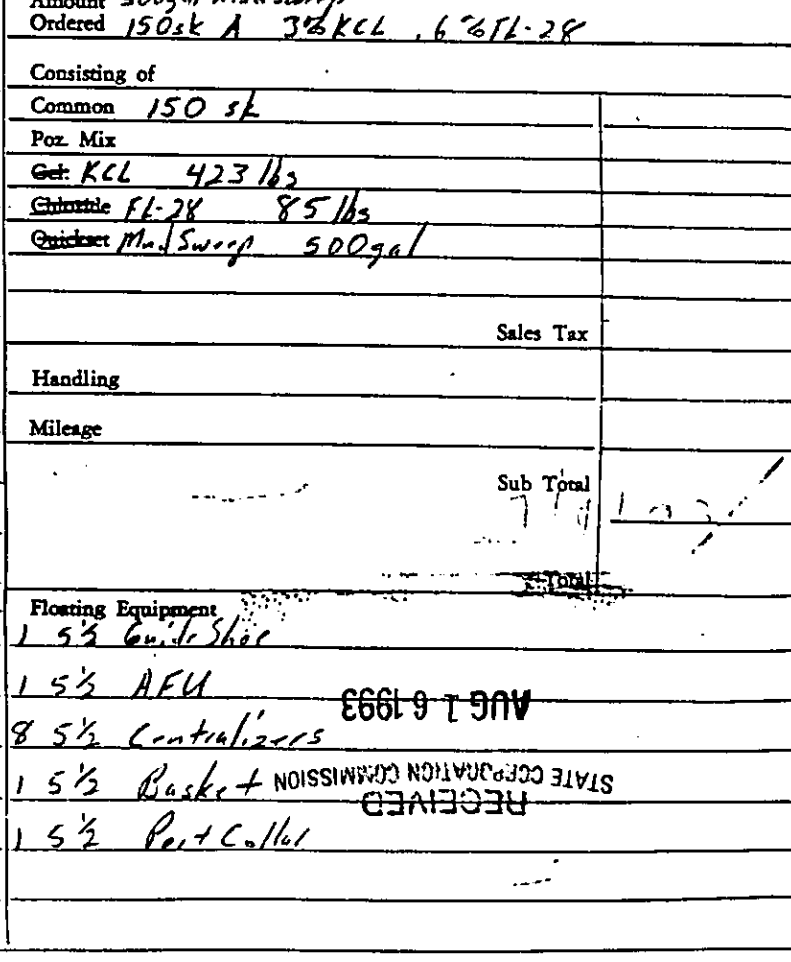 Amount 500gal Mud Sweep
Ordered 150sk A 3%KCL .6%FL-28
Consisting of
Common 150 sk
Poz. Mix
Gel: KCL 423 lbs
Chloride FL-28 85 lbs
Quickset Mud Sweep 500gal
Sales Tax
Handling
Mileage
Sub Total
Total
Floating Equipment
1 5½ Guide Shoe
1 5½ AFU
AUG 16 1993
8 5½ Centralizers
1 5½ Basket
STATE CORPORATION COMMISSION
RECEIVED
1 5½ Port Collar